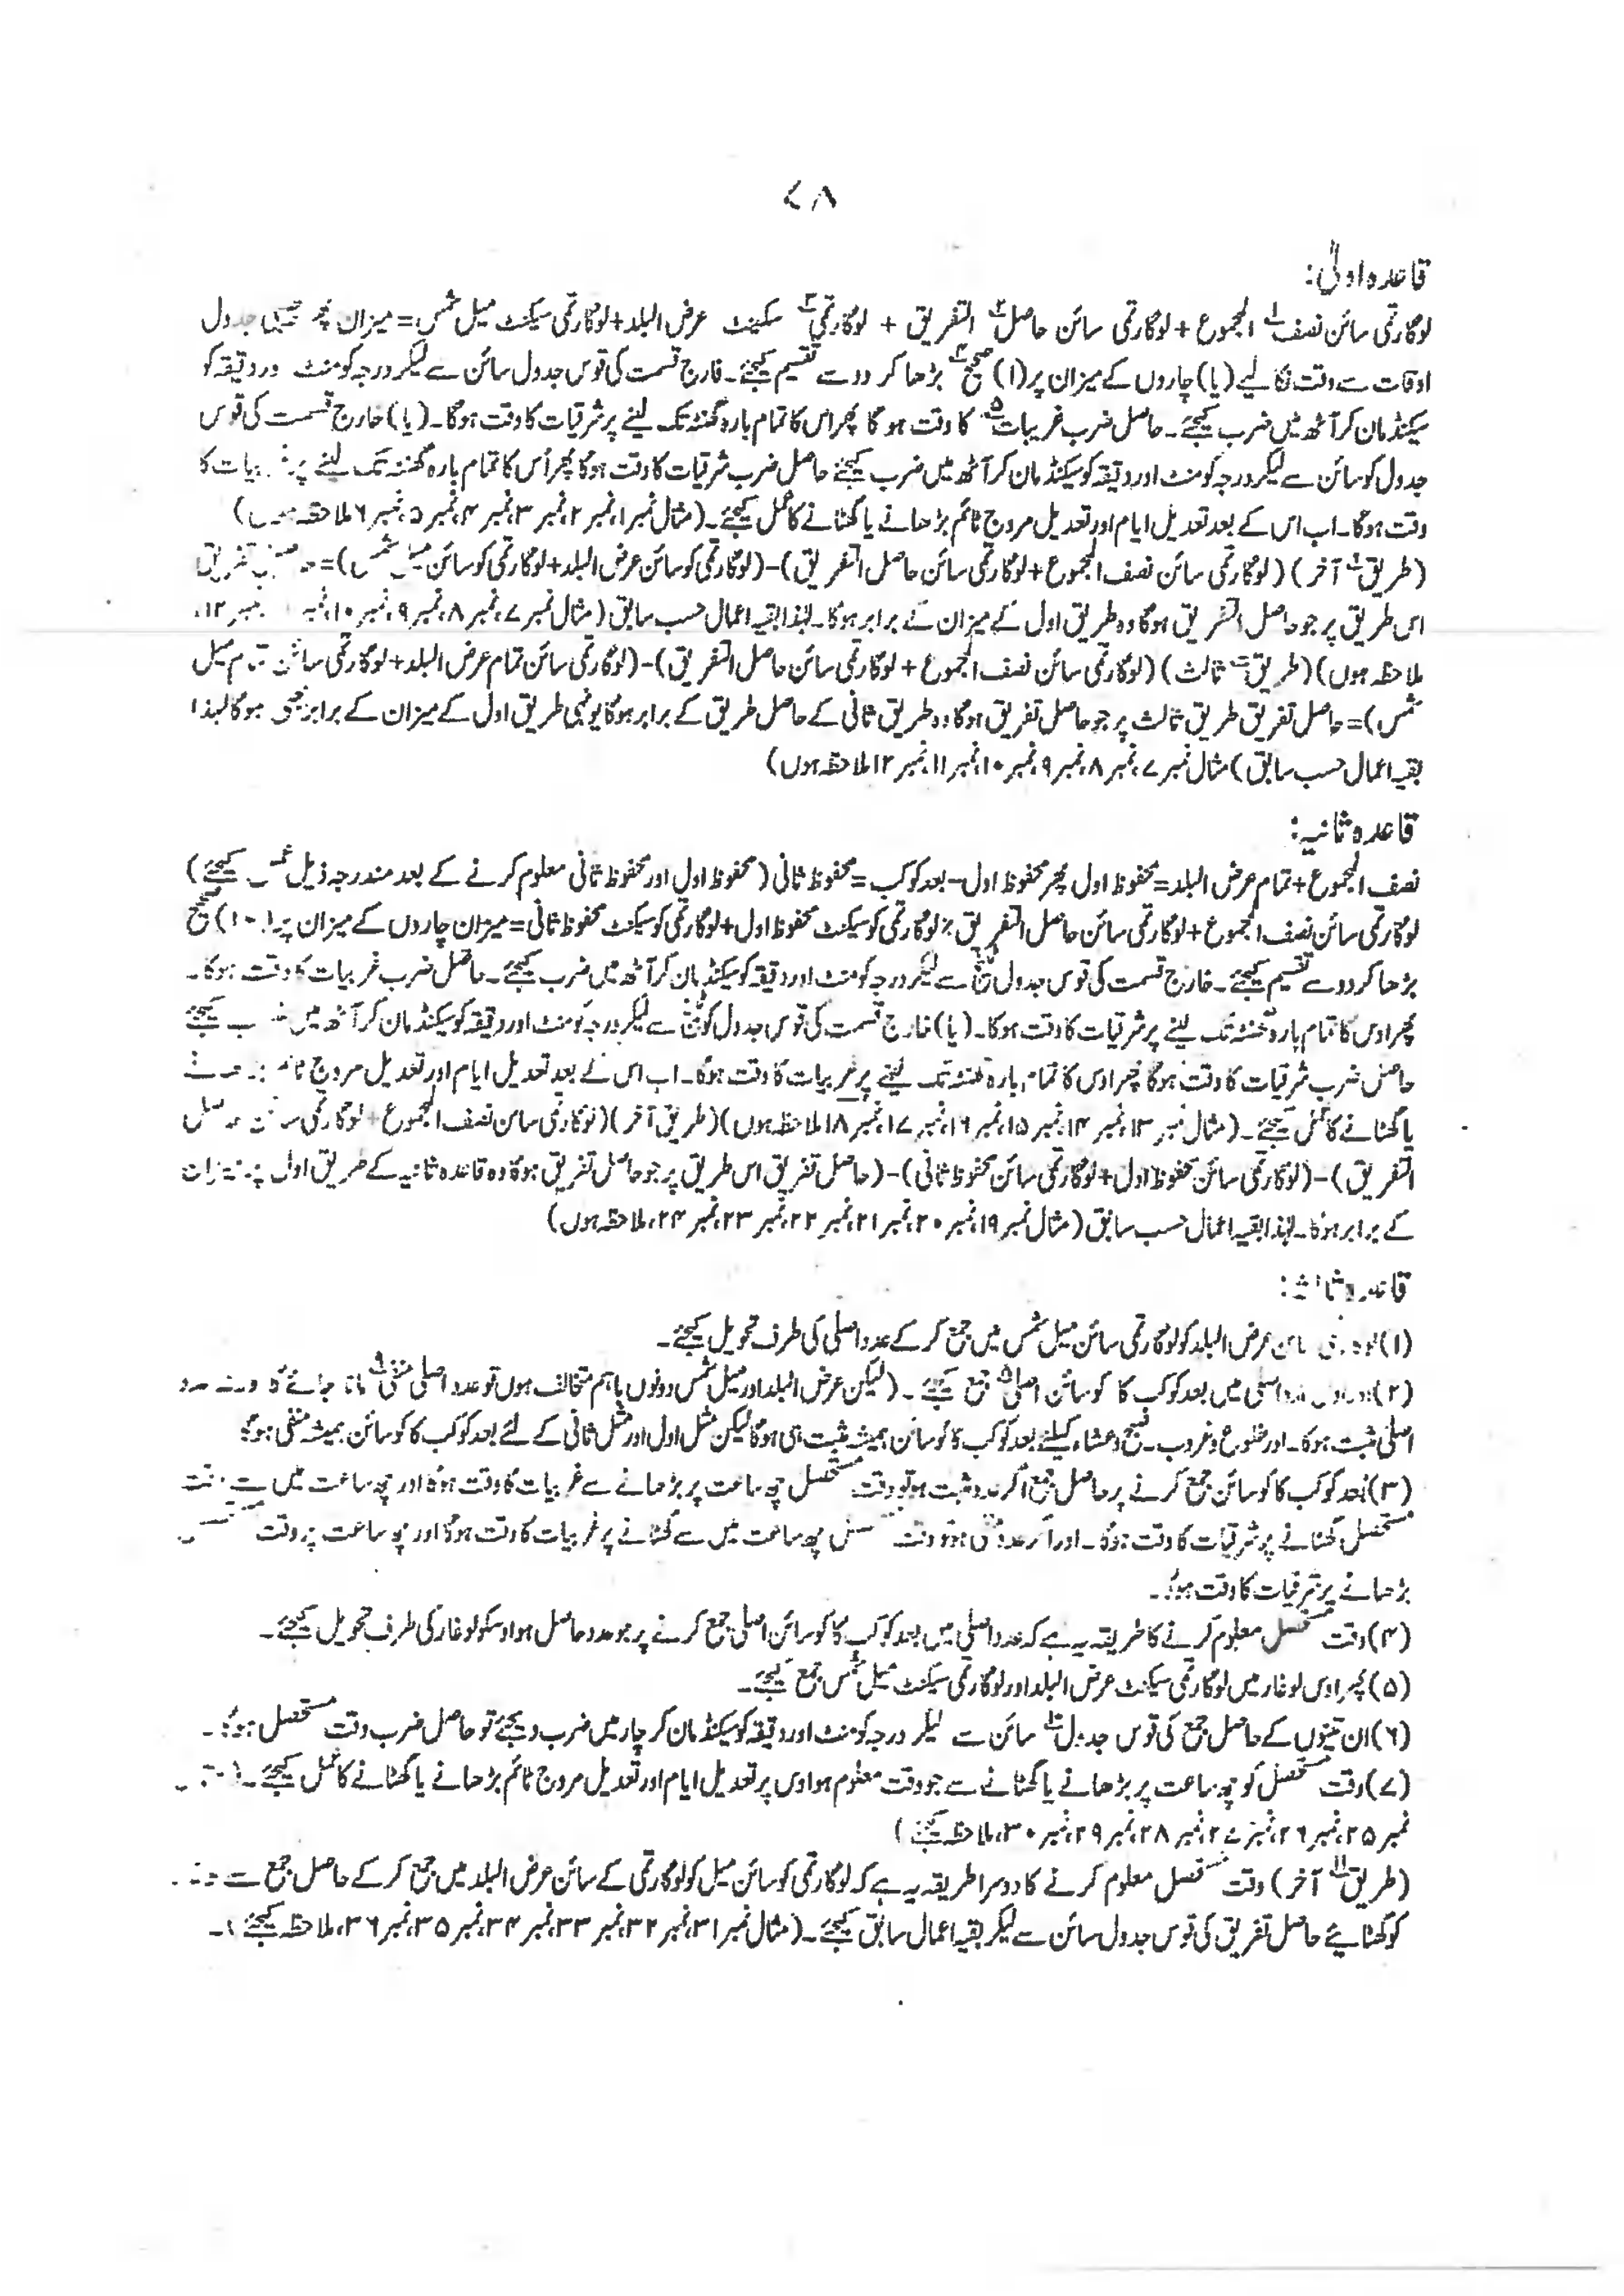 ۷۸
قاعدہ اولیٰ:
لوگارتمی سائن نصف۱ المجموع + لوگارتمی سائن حاصل۲ التفریق + لوگارتمی۳ سکینٹ عرض البلد + لوگارتمی سیکنٹ میل شمس = میزان پھر جدول
اوقات سے وقت نکالیے (یا) چاروں کے میزان پر (۱) صحیح۴ بڑھا کر دو سے تقسیم کیجئے۔ خارج قسمت کی قوس جدول سائن سے لیکر درجہ کو منٹ ور دقیقہ کو
سیکنڈ مان کر آٹھ میں ضرب کیجئے۔ حاصل ضرب غربیات۵ کا وقت ہوگا پھر اس کا تمام بارہ گھنٹہ تک لینے پر شرقیات کا وقت ہوگا۔ (یا) خارج قسمت کی قوس
جدول کو سائن سے لیکر درجہ کو منٹ اور دقیقہ کو سیکنڈ مان کر آٹھ میں ضرب کیجئے حاصل ضرب شرقیات کا وقت ہوگا پھر اُس کا تمام بارہ گھنٹہ تک لینے پر بیات کا
وقت ہوگا۔ اب اس کے بعد تعدیل ایام اور تعدیل مروج ٹائم بڑھانے یا گھٹانے کا عمل کیجئے۔ (مثال نمبر ۱، نمبر ۲، نمبر ۳، نمبر ۴، نمبر ۵، نمبر ۶ ملاحظہ ہوں)
(طریق آخر) (لوگارتمی سائن نصف المجموع + لوگارتمی سائن حاصل التفریق) - (لوگارتمی کو سائن عرض البلد + لوگارتمی کو سائن میل شمس) = تفریق
اس طریق پر جو حاصل التفریق ہوگا وہ طریق اول کے میزان کے برابر ہوگا۔ لہٰذا بقیہ اعمال حسب سابق (مثال نمبر ۷، نمبر ۸، نمبر ۹، نمبر ۱۰، نمبر ۱۲،
ملاحظہ ہوں) (طریق ثالث) (لوگارتمی سائن نصف المجموع + لوگارتمی سائن حاصل التفریق) - (لوگارتمی سائن تمام عرض البلد + لوگارتمی سائن تمام میل
شمس) = حاصل تفریق طریق ثالث پر جو حاصل تفریق ہوگا وہ طریق ثانی کے حاصل طریق کے برابر ہوگا یونہی طریق اول کے میزان کے برابر بھی ہوگا لہٰذا
بقیہ اعمال حسب سابق) مثال نمبر ۷، نمبر ۸، نمبر ۹، نمبر ۱۰، نمبر ۱۱، نمبر ۱۲ ملاحظہ ہوں)
قاعدہ ثانیہ:
نصف المجموع + تمام عرض البلد = محفوظ اول پھر محفوظ اول - بعد کوکب = محفوظ ثانی (محفوظ اول اور محفوظ ثانی معلوم کرنے کے بعد مندرجہ ذیل عمل کیجئے)
لوگارتمی سائن نصف المجموع + لوگارتمی سائن حاصل التفریق لوگارتمی کو سیکنٹ محفوظ اول + لوگارتمی کو سیکنٹ محفوظ ثانی = میزان چاروں کے میزان پر (۱۰) صحیح
بڑھا کر دو سے تقسیم کیجئے۔ خارج قسمت کی قوس جدول سے لیکر درجہ کو منٹ اور دقیقہ کو سیکنڈ مان کر آٹھ میں ضرب کیجئے۔ حاصل ضرب غربیات کا وقت ہوگا۔
پھر اوس کا تمام بارہ گھنٹہ تک لینے پر شرقیات کا وقت ہوگا۔ (یا) خارج قسمت کی قوس جدول سے لیکر درجہ کو منٹ اور دقیقہ کو سیکنڈ مان کر آٹھ میں ضرب کیجئے
حاصل ضرب شرقیات کا وقت ہوگا پھر اوس کا تمام بارہ گھنٹہ تک لینے پر غربیات کا وقت ہوگا۔ اب اس کے بعد تعدیل ایام اور تعدیل مروج ٹائم
یا گھٹانے کا عمل کیجئے۔ (مثال نمبر ۱۳، نمبر ۱۴، نمبر ۱۵، نمبر ۱۶، نمبر ۱۷، نمبر ۱۸ ملاحظہ ہوں) (طریق آخر) (لوگارتمی سائن نصف المجموع + لوگارتمی سائن حاصل
التفریق) - (لوگارتمی سائن محفوظ اول + لوگارتمی سائن محفوظ ثانی) - (حاصل تفریق اس طریق پر جو حاصل تفریق ہوگا وہ قاعدہ ثانیہ کے طریق اول پر میزان
کے برابر ہوگا۔ لہٰذا بقیہ اعمال حسب سابق (مثال نمبر ۱۹، نمبر ۲۰، نمبر ۲۱، نمبر ۲۲، نمبر ۲۳، نمبر ۲۴، ملاحظہ ہوں)
قاعدہ ثالثہ:
(۱) سائن عرض البلد کو لوگارتمی سائن میل شمس میں جمع کر کے عدد اصلی کی طرف تحویل کیجئے۔
(۲) عدد اصلی میں بعد کوکب کا کو سائن اصلی جمع کیجئے۔ (لیکن عرض البلد اور میل شمس دونوں باہم مخالف ہوں تو عدد اصلی منفی۹ مانا جائے گا ورنہ عدد
اصلی مثبت ہوگا۔ اور طلوع و غروب۔ صبح و عشاء کیلئے بعد کوکب کا کو سائن ہمیشہ مثبت ہی ہوگا لیکن مثل اول اور مثل ثانی کے لئے بعد کوکب کا کو سائن ہمیشہ منفی ہوگا
(۳) بُعد کوکب کا کو سائن جمع کرنے پر حاصل جمع اگر عدد مثبت ہو تو وقت مستحصل چھ ساعت پر بڑھانے سے غربیات کا وقت ہوگا اور چھ ساعت میں سے وقت
مستحصل گھٹانے پر شرقیات کا وقت ہوگا۔ اور اگر عدد منفی ہو تو وقت مستحصل چھ ساعت میں سے گھٹانے پر غربیات کا وقت ہوگا اور چھ ساعت پر وقت
بڑھانے پر شرقیات کا وقت ہوگا۔
(۴) وقت مستحصل معلوم کرنے کا طریقہ یہ ہے کہ عدد اصلی میں بعد کوکب کا کو سائن اصلی جمع کرنے پر جو عدد حاصل ہو اوسکو لوغار کی طرف تحویل کیجئے۔
(۵) پھر اوس لوغار میں لوگارتمی سیکنٹ عرض البلد اور لوگارتمی سیکنٹ میل شمس جمع کیجئے۔
(۶) ان تینوں کے حاصل جمع کی قوس جدول۱۰ سائن سے لیکر درجہ کو منٹ اور دقیقہ کو سیکنڈ مان کر چار میں ضرب دیجئے تو حاصل ضرب وقت مستحصل ہوگا۔
(۷) وقت مستحصل کو چھ ساعت پر بڑھانے یا گھٹانے سے جو وقت معلوم ہو اوس پر تعدیل ایام اور تعدیل مروج ٹائم بڑھانے یا گھٹانے کا عمل کیجئے۔
نمبر ۲۵، نمبر ۲۶، نمبر ۲۷، نمبر ۲۸، نمبر ۲۹، نمبر ۳۰، ملاحظہ کیجئے)
(طریق۱۱ آخر) وقت مستحصل معلوم کرنے کا دوسرا طریقہ یہ ہے کہ لوگارتمی کو سائن میل کو لوگارتمی کے سائن عرض البلد میں جمع کر کے حاصل جمع سے
کو گھٹایئے حاصل تفریق کی قوس جدول سائن سے لیکر بقیہ اعمال سابق کیجئے۔ (مثال نمبر ۳۱، نمبر ۳۲، نمبر ۳۳، نمبر ۳۴، نمبر ۳۵، نمبر ۳۶، ملاحظہ کیجئے)۔